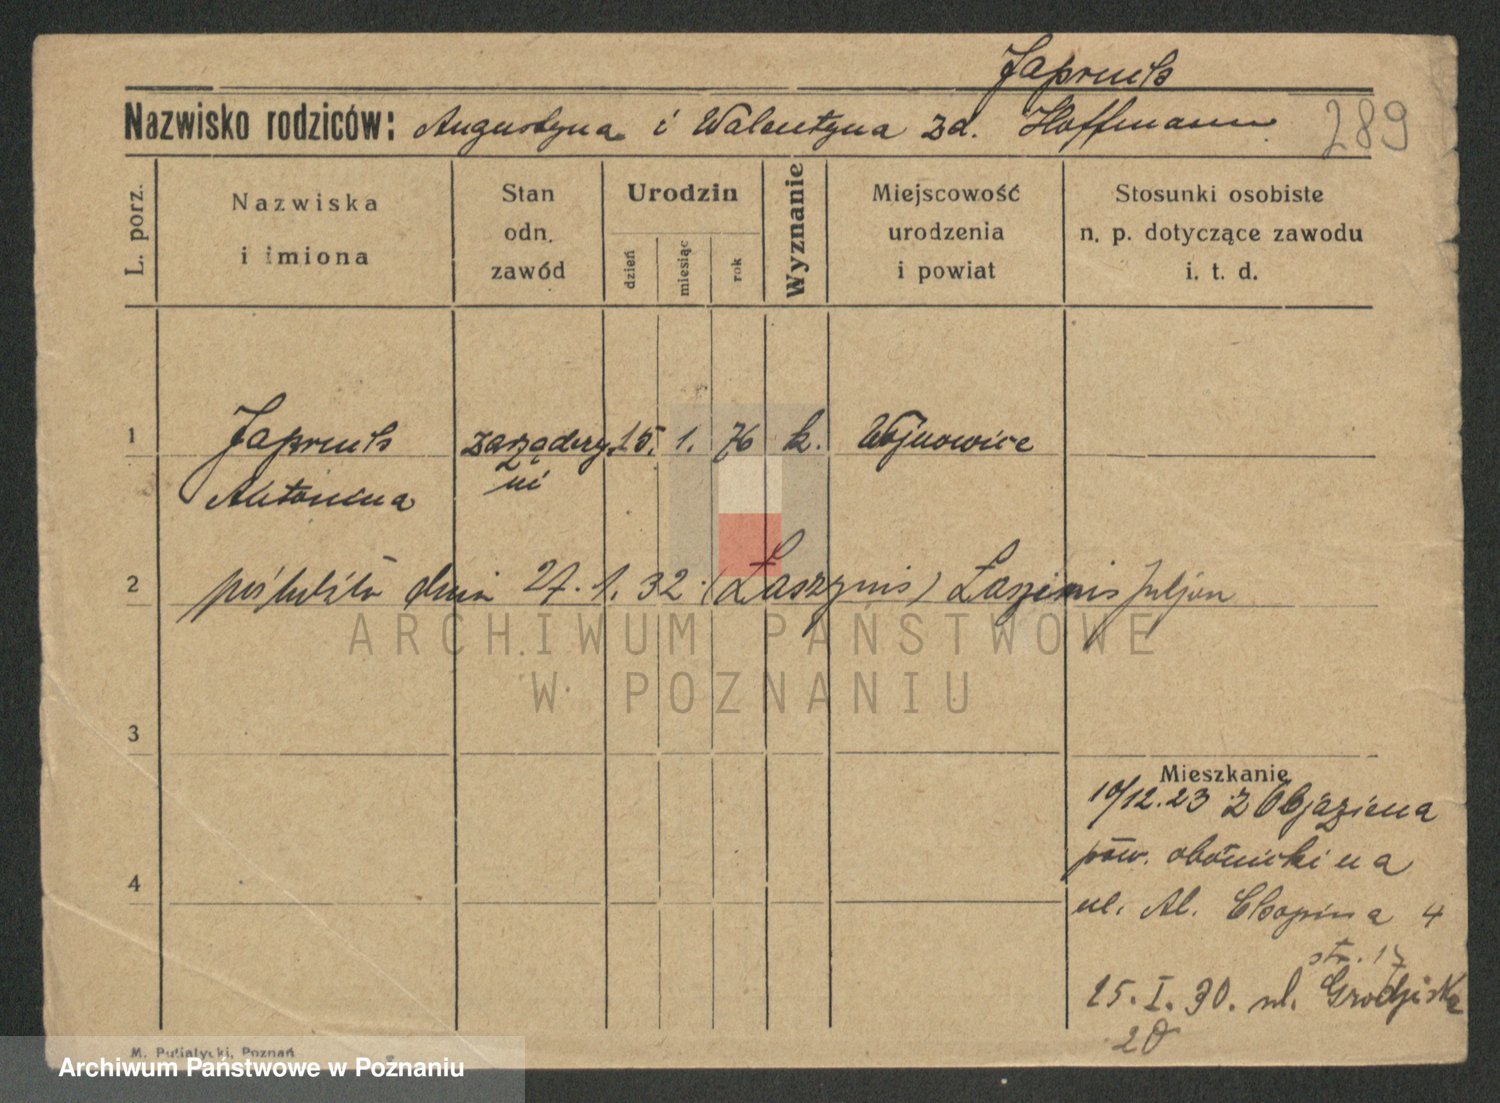 Japruth
Nazwisko rodziców: Augustyna i Walentyna za. Hoffmann 289
L. porz.
Nazwiska
i imiona
Stan
odn.
zawód
Urodzin
dzień
miesiąc
rok
Wyznanie
Miejscowość
urodzenia
i powiat
Stosunki osobiste
n. p. dotyczące zawodu
i. t. d.
1 Japruth zarządczy 15. 1. 76 k. Wojnowice
Antonina ni
2 poślubiła dnia 27. 1. 32. (Łaszynis) Julian
ARCHIWUM PAŃSTWOWE
W POZNANIU
3
Mieszkanie
10/12.23 z Objezierza
pow. obornicki na
4
ul. Al. Chopina 4
str. 17
25. I. 30. ul. Grodziska
20
M. Putiatycki, Poznań
Archiwum Państwowe w Poznaniu